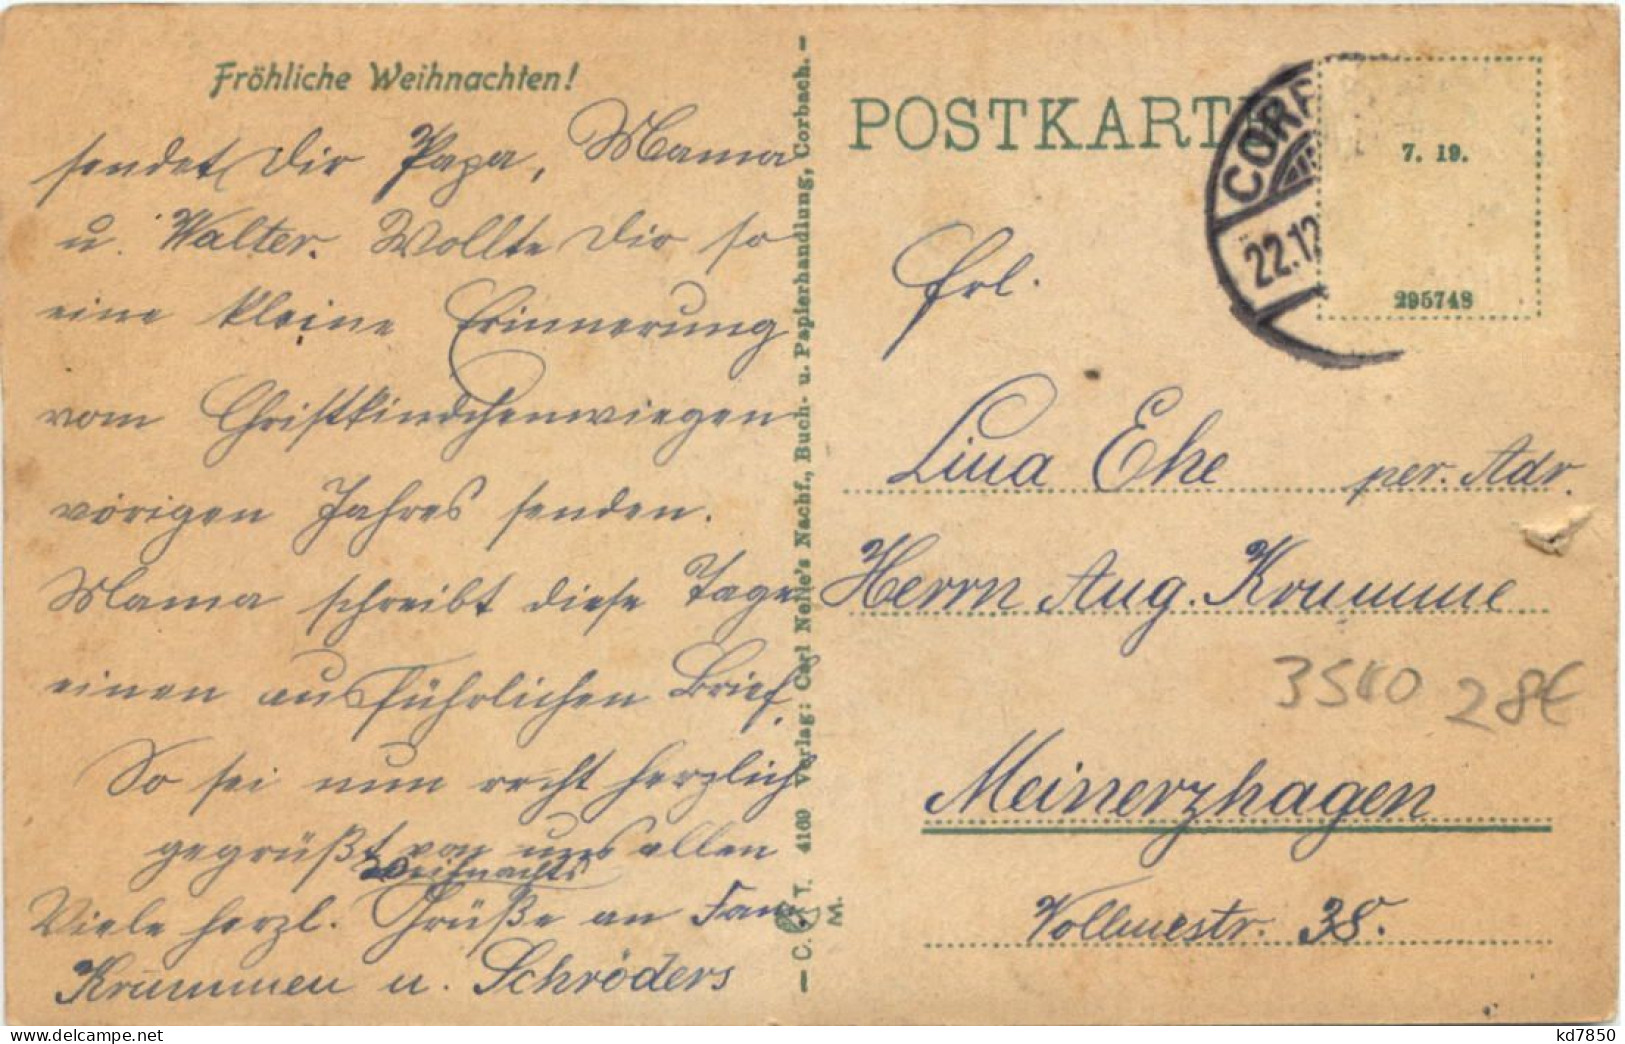 Fröhliche Weihnachten!
sendet Dir Papa, Mama
u. Walter. Wollte Dir so
eine kleine Erinnerung
vom Christkindchenwiegen
vorigen Jahres senden.
Mama schreibt diese Tage
einen ausführlichen Brief.
So sei nun recht herzlich
gegrüßt von uns allen
Weihnachts
Viele herzl. Grüße an Fam.
Krummen u. Schröders
— C. T. 4169 Verlag: Carl Nachf., Buch- u. Papierhandlung, Corbach. —
M.
POSTKARTE
COR
22.12
7. 19.
295748
Frl.
Lina Ehe per. Adr.
Herrn Aug. Krumme
28€
Meinerzhagen
Vollmestr. 38.
kd7850